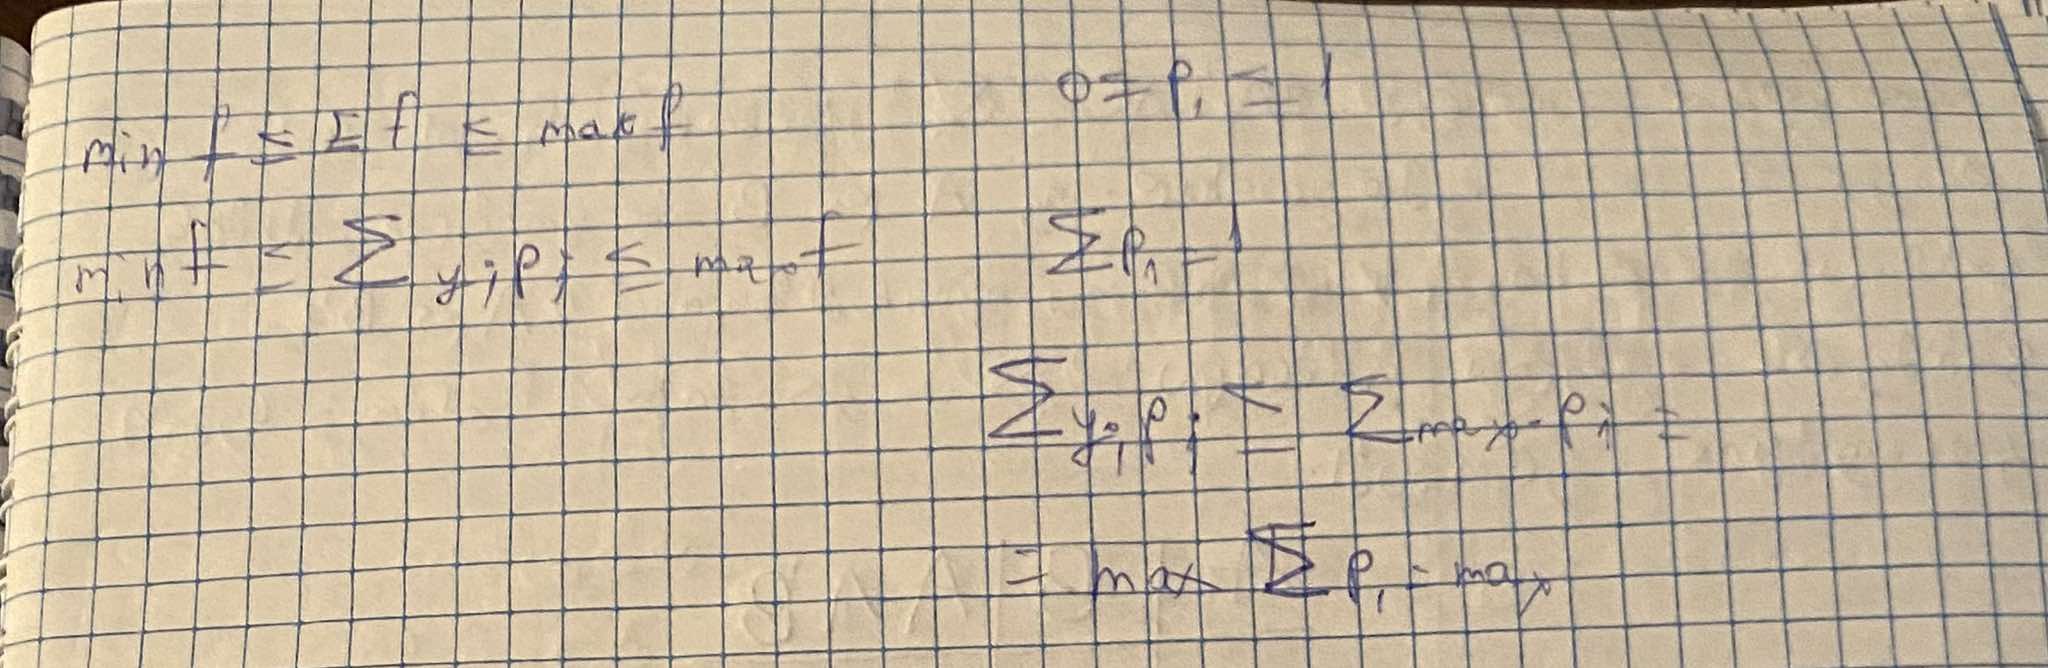 min f ≤ Σ f ≤ max f
min f ≤ Σ y_i p_i ≤ max f
0 ≤ p_i ≤ 1
Σ p_i = 1
Σ y_i p_i ≤ Σ max · p_i =
= max Σ p_i = max